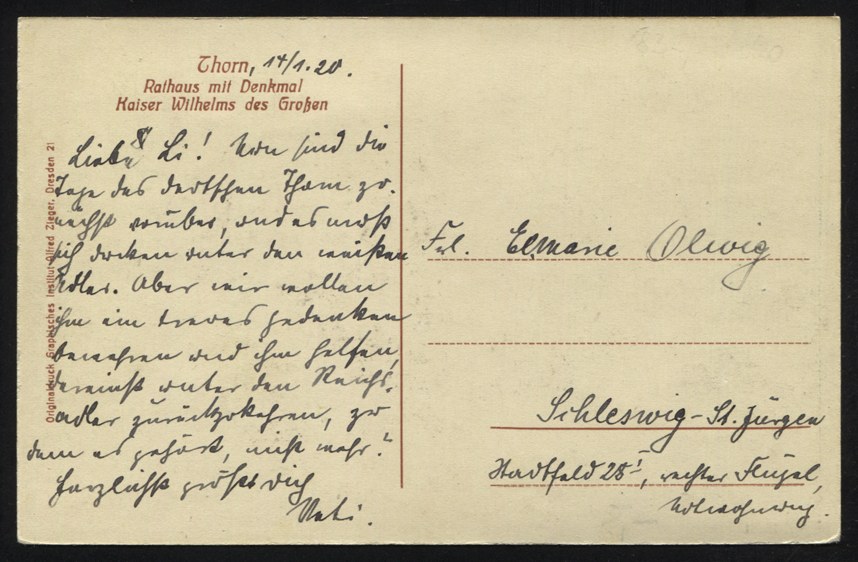 Thorn, 14/1.20.
Rathaus mit Denkmal
Kaiser Wilhelms des Großen
Originaldruck Graphisches Institut Alfred Zieger, Dresden 21
Liebe Li! Nun sind die
Tage des deutschen Thorn zu-
nächst vorüber, und es muß
sich ducken unter den weißen
Adler. Aber wir wollen
ihm ein treues Gedenken
bewahren und ihm helfen,
dereinst unter den Reichs-
adler zurückzukehren, zu
dem es gehört, nicht wahr?
Herzlichst grüßt dich
Vati.
Frl. Elmarie Olwig
Schleswig-St. Jürgen
Stadtfeld 25 I, rechter Flügel,
Notwohnung.